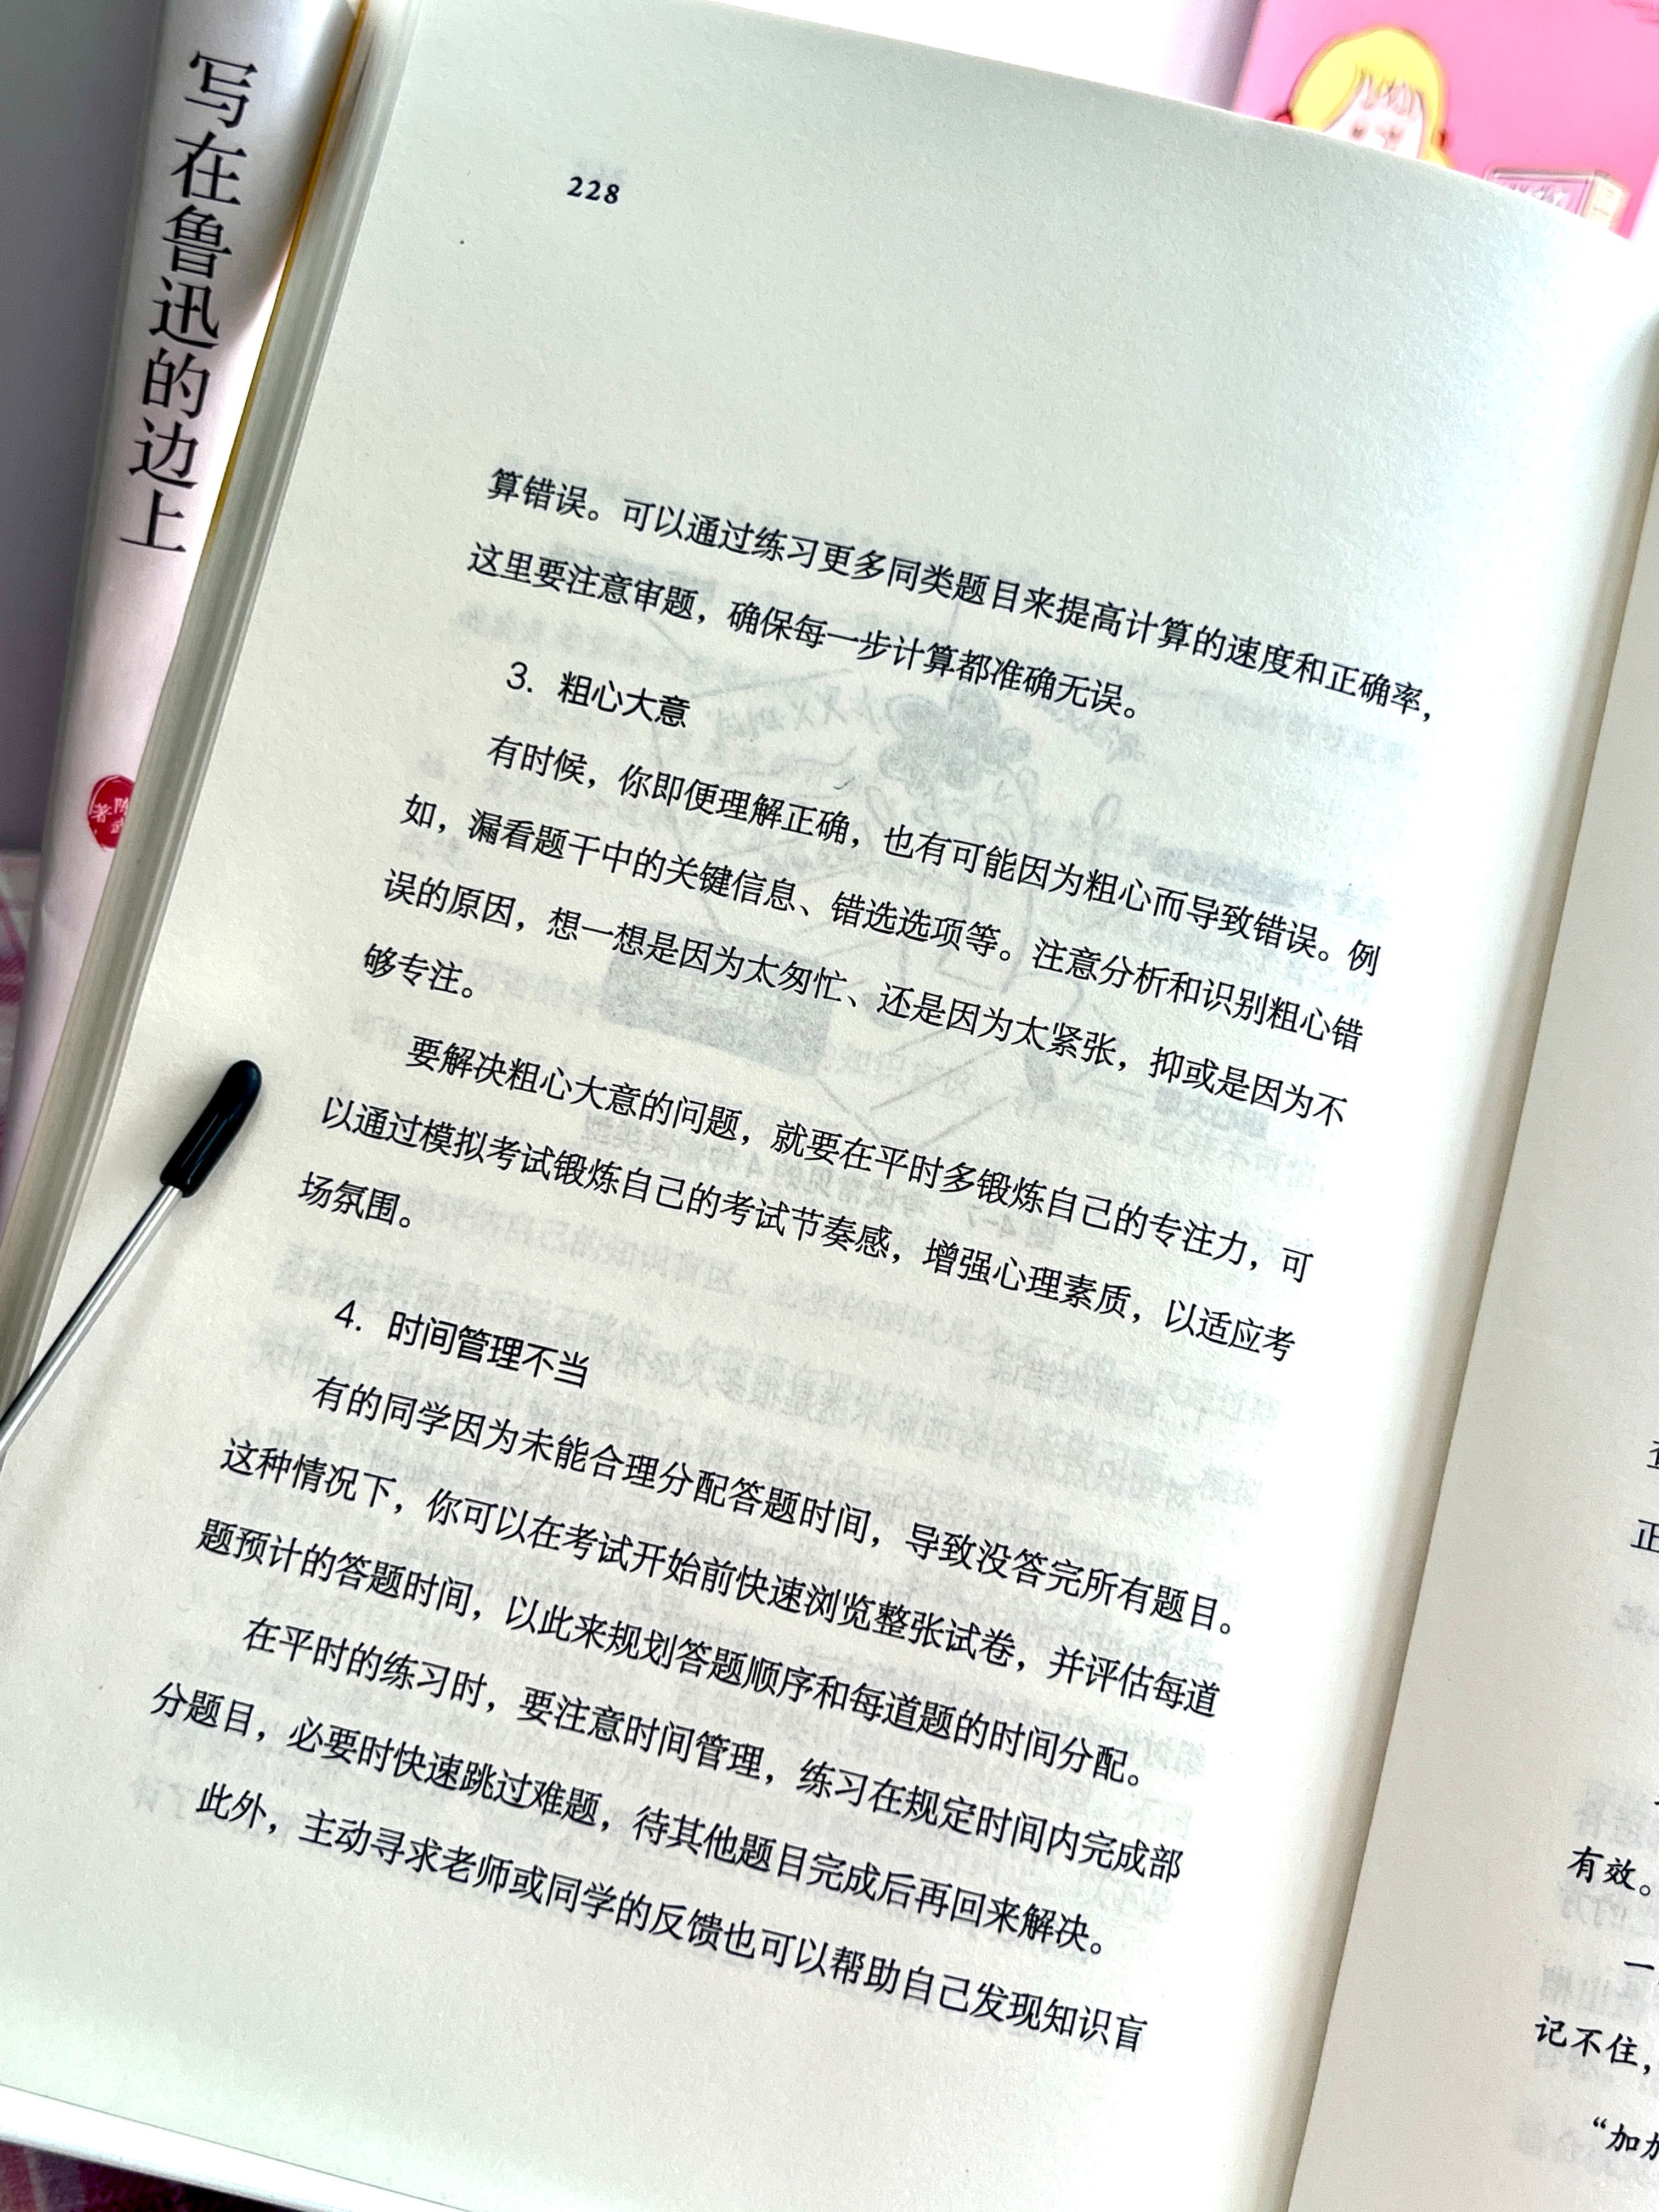 写在鲁迅的边上
著
228
算错误。可以通过练习更多同类题目来提高计算的速度和正确率，
这里要注意审题，确保每一步计算都准确无误。
3. 粗心大意
有时候，你即便理解正确，也有可能因为粗心而导致错误。例
如，漏看题干中的关键信息、错选选项等。注意分析和识别粗心错
误的原因，想一想是因为太匆忙、还是因为太紧张，抑或是因为不
够专注。
要解决粗心大意的问题，就要在平时多锻炼自己的专注力，可
以通过模拟考试锻炼自己的考试节奏感，增强心理素质，以适应考
场氛围。
4. 时间管理不当
有的同学因为未能合理分配答题时间，导致没答完所有题目。
这种情况下，你可以在考试开始前快速浏览整张试卷，并评估每道
题预计的答题时间，以此来规划答题顺序和每道题的时间分配。
在平时的练习时，要注意时间管理，练习在规定时间内完成部
分题目，必要时快速跳过难题，待其他题目完成后再回来解决。
此外，主动寻求老师或同学的反馈也可以帮助自己发现知识盲
正
有效。
一
记不住，
“加